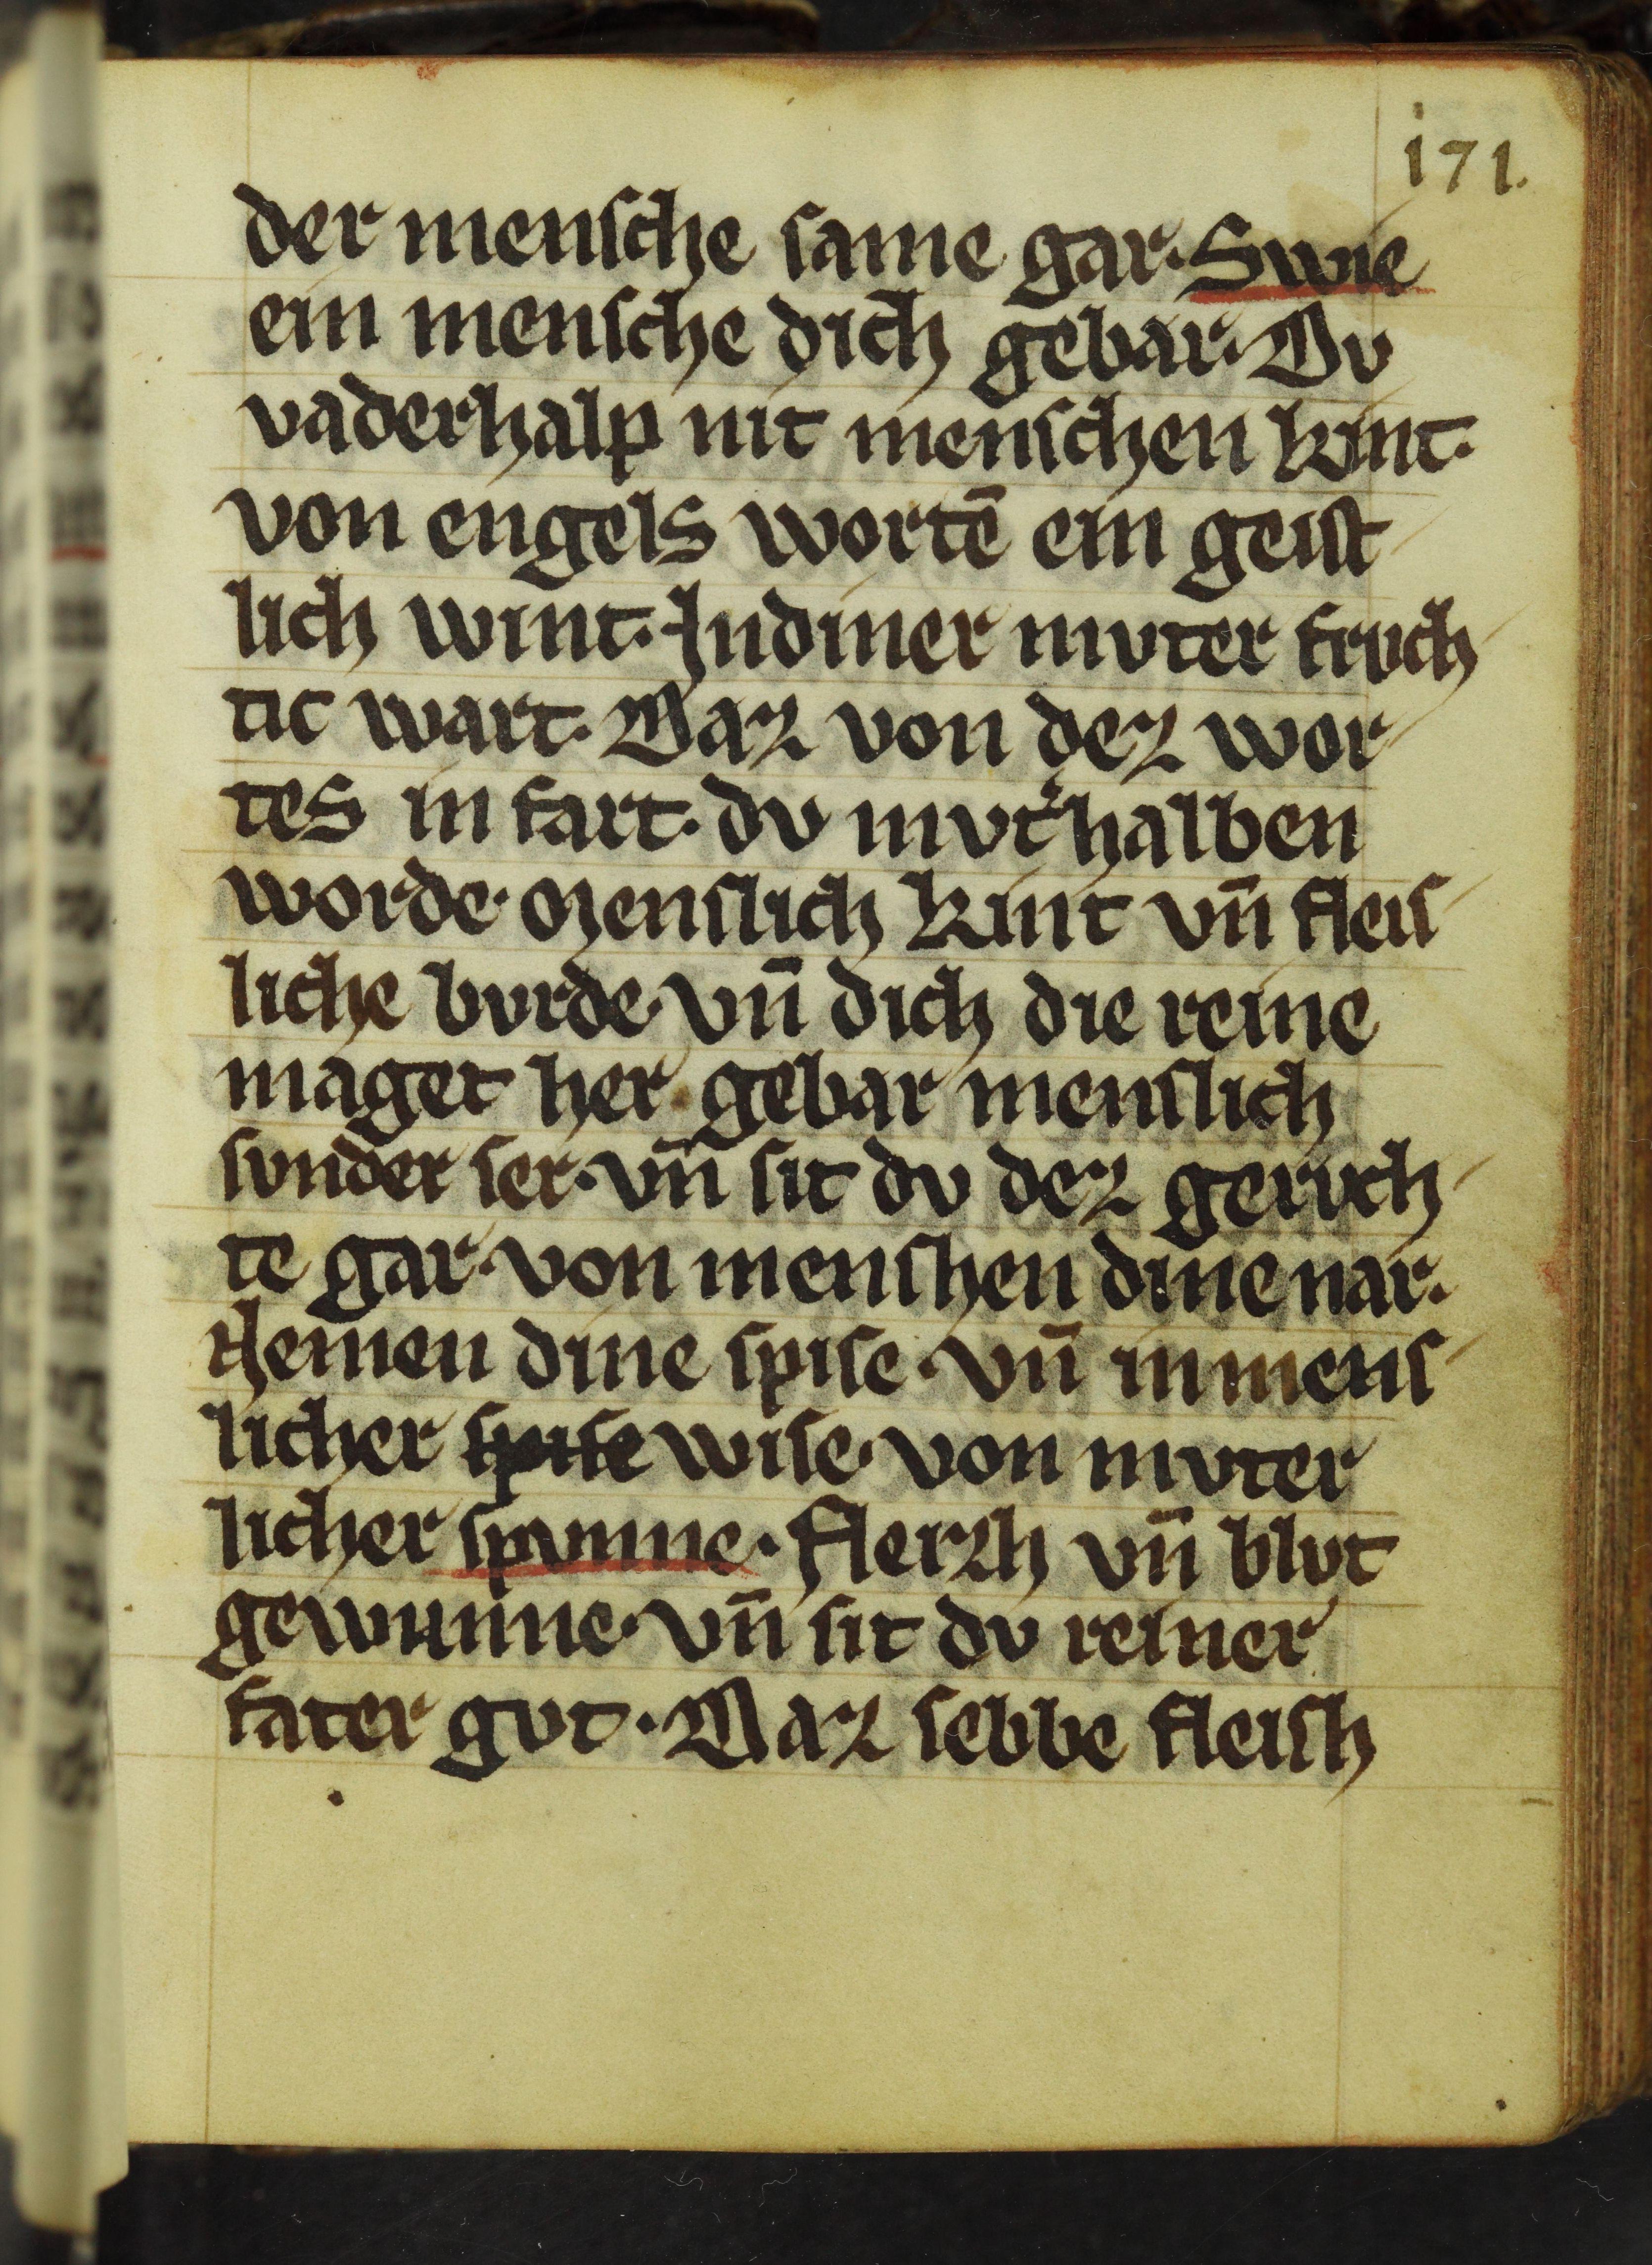 171.
der mensche same gar. Swie
ein mensche dich gebar. Du
vaderhalp nit menschen kint.
von engels wortē ein geist
lich wint. Jndiner mvter fruch
tic wart. Daz von dez wor
tes in fart. dv mvt͛halben
worde. Menslich kint vn̄ fleis
liche bvrde. vn̄ dich die reine
maget her gebar menslich
svnder ser. vn̄ sit dv dez gervch
te gar. von menshen dine nar.
Nemen dine spise. vn̄ in mens
licher spise wise. von mvter
licher spvnne. flerzh vn̄ blvt
gewunne. vn̄ sit dv reiner
fater gvt. Daz sebbe fleish